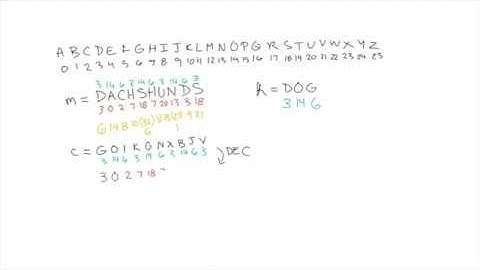 A B C D E F G H I J K L M N O P Q R S T U V W X Y Z
0 1 2 3 4 5 6 7 8 9 10 11 12 13 14 15 16 17 18 19 20 21 22 23 24 25
3 14 6 3 14 6 3 14 6 3
m = DACHSHUNDS k = DOG
3 0 2 7 18 7 20 13 3 18 3 14 6
6 14 8 10 (32)
6 1
C = GOIKGNXBJV DEC
3 14 6 3 14 6 3 14 6 3
3 0 2 7 18